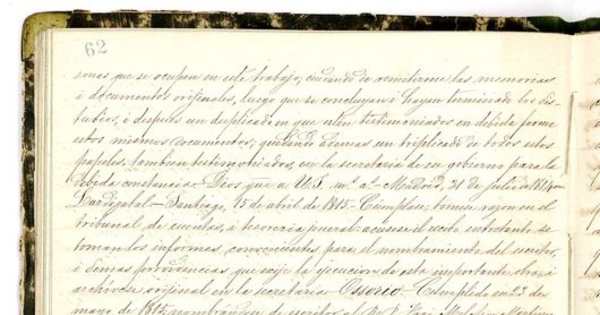 62
sonas que se ocupen en este trabajo; cuidando de remitirme las memorias
i documentos orijinales, luego que se concluyan i hayan terminado los dis-
tubios, i despues un duplicado en que esten testimoniados en debida forma
estos mismos documentos; quedando ademas un triplicado de todos estos
papeles, tambien testimoniados, en la secretaría de su gobierno para la
debida constancia.—Dios gue. a U.S. ms. as.—Madrid, 21 de julio de 1814.—
Lardizabal.—Santiago, 15 de abril de 1815.—Cúmplase: tómese razon en el
tribunal de cuentas, i tesorería jeneral: acúsese el recibo entretanto se
toman los informes, convenientes para el nombramiento del escritor,
i demas providencias que exije la ejecucion de esta importante obra; i
archívese orijinal en la secretaria.—Ossorio.—Cumplido en 23 de
mayo de 1815, nombrándose de escritor al R. P. Frai Melchor Martinez